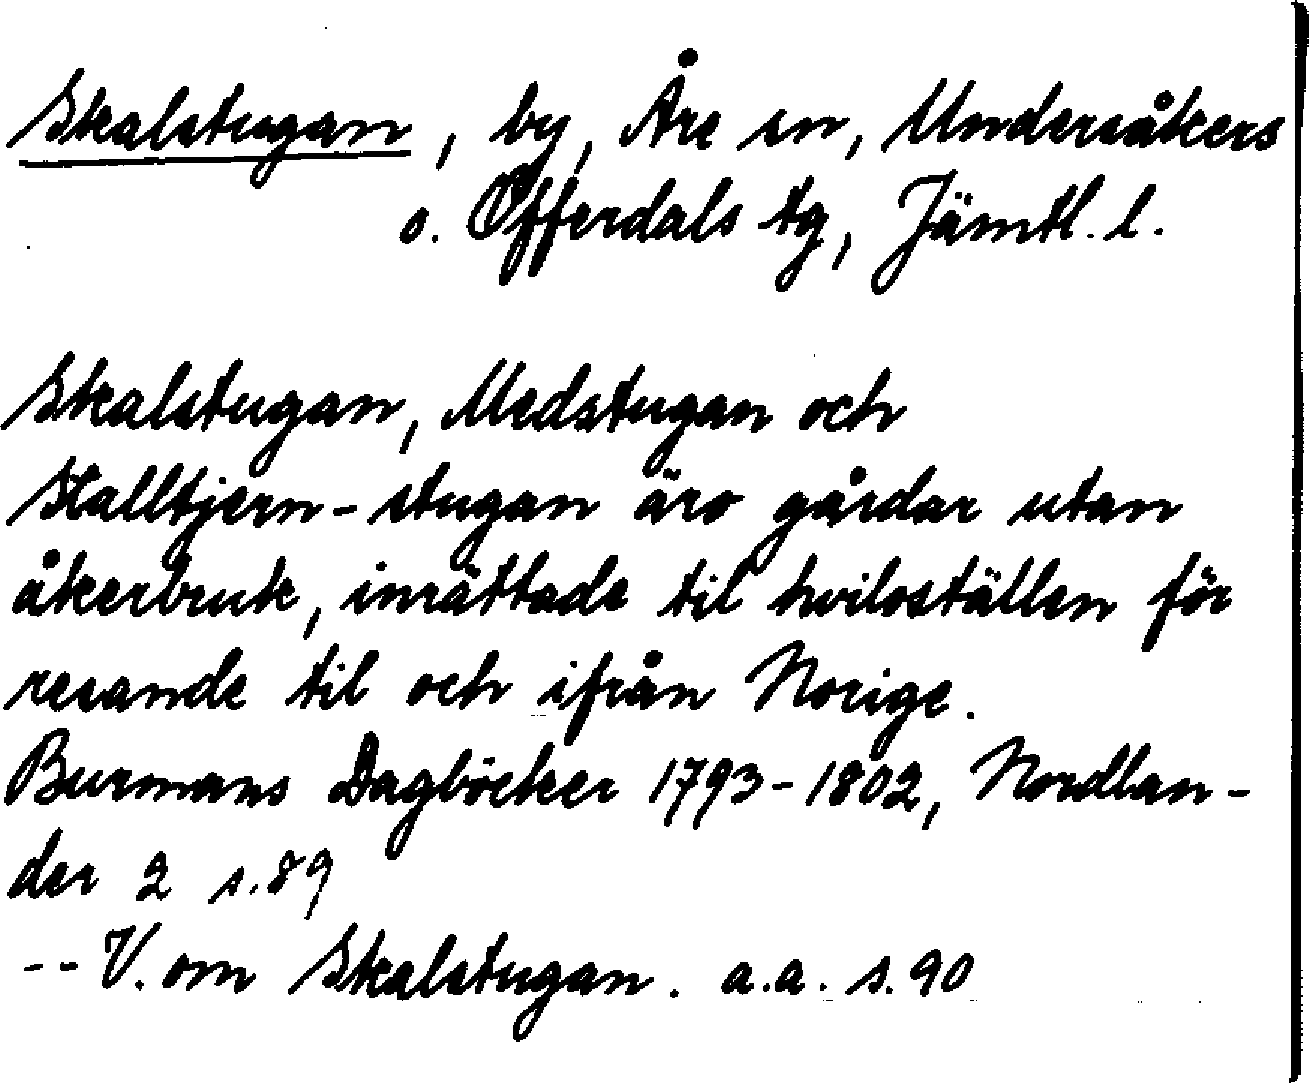 Skalstugan, by, Åre sn, Undersåkers
o. Offerdals tg, Jämtl. l.
Skalstugan, Medstugan och
Stalltjern-stugan äro gårdar utan
åkerbruk, inrättade til hviloställen för
resande til och ifrån Norige.
Burmans Dagböcker 1793-1802, Nordlan-
der 2 s.89
-- V. om Skalstugan. a.a. s.90